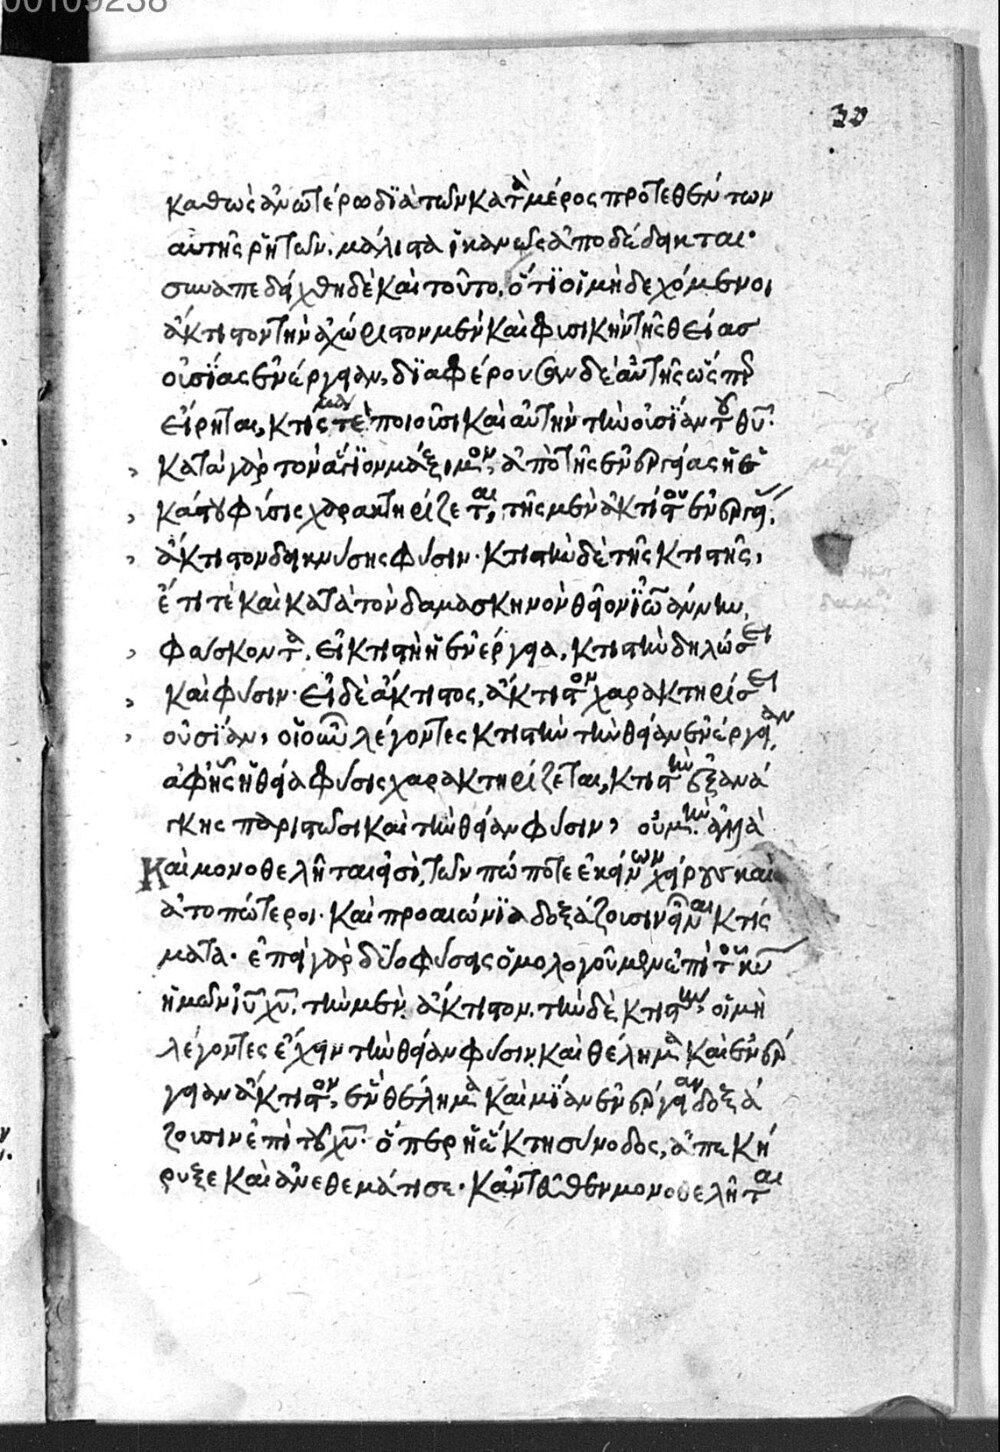 00109238
30
καθὼς ἀνωτέρω διὰ τῶν κατὰ μέρος προτεθέντων
αὐτῆς ῥητῶν. μάλιστα ἱκανῶς ἀποδέδεικται·
συναπεδείχθη δὲ καὶ τοῦτο. ὅτι οἱ μὴ δεχόμενοι
ἄκτιστον τὴν ἀχώριστον μὲν καὶ φυσικὴν τῆς θείας
οὐσίας ἐνέργειαν, διαφέρουσαν δὲ αὐτῆς ὥσπερ
εἴρηται, κτίσμα τὲ ποιοῦσι καὶ αὐτὴν τὴν οὐσίαν τοῦ θυ·
κατὰ γὰρ τὸν ἅγιον μάξιμον, ἀπὸ τῆς ἐνεργείας ἡ
φύσις χαρακτηρίζεται, τῆς μὲν ἀκτίστου ἐνεργείας
ἄκτιστον δεικνύσης φύσιν· κτιστὴν δὲ τῆς κτιστῆς,
ἔτι τὲ καὶ κατὰ τὸν δαμασκηνὸν θεῖον ἰωάννην
φάσκοντα. εἰ κτιστὴ ἡ ἐνέργεια, κτιστὴν δηλώσει
καὶ φύσιν· εἰ δὲ ἄκτιστος, ἄκτιστον χαρακτηρίσει
οὐσίαν, οἱ οὖν λέγοντες κτιστὴν τὴν θείαν ἐνέργειαν
ἀφ' ἧς ἡ θεία φύσις χαρακτηρίζεται, κτιστὴν ἐξ ἀνά
γκης παριστῶσι καὶ τὴν θείαν φύσιν, οὐ μὴν ἀλλὰ
Καὶ μονοθελῆται εἰσὶ, τῶν πώποτε ἐκείνων χείρους καὶ
ἀτοπώτεροι· καὶ προαιώνια δοξάζουσιν εἶναι κτίσ
ματα. ἐπεὶ γὰρ δύο φύσεις ὁμολογοῦμεν ἐπὶ τοῦ κυ
ἡμῶν ιυ χυ. τὴν μὲν, ἄκτιστον. τὴν δὲ, κτιστὴν, οἱ μὴ
λέγοντες ἔχειν τὴν θείαν φύσιν καὶ θέλημα καὶ ἐνέρ
γειαν ἄκτιστον, ἓν θέλημα καὶ μίαν ἐνέργειαν δοξά
ζουσιν ἐπὶ τοῦ χυ· ὅπερ ἡ ἕκτη σύνοδος, ἀπεκή
ρυξε καὶ ἀνεθεμάτισε. κἀντεῦθεν μονοθελῆται